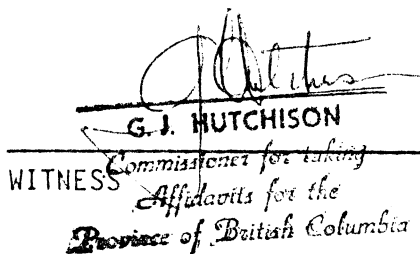 G. J. HUTCHISON
Commissioner for taking
WITNESS
Affidavits for the
Province of British Columbia